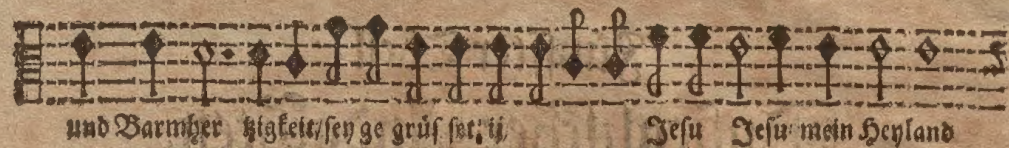 und Barmher tzigkeit/sey ge grüs set, ij Jesu Jesu mein Heyland